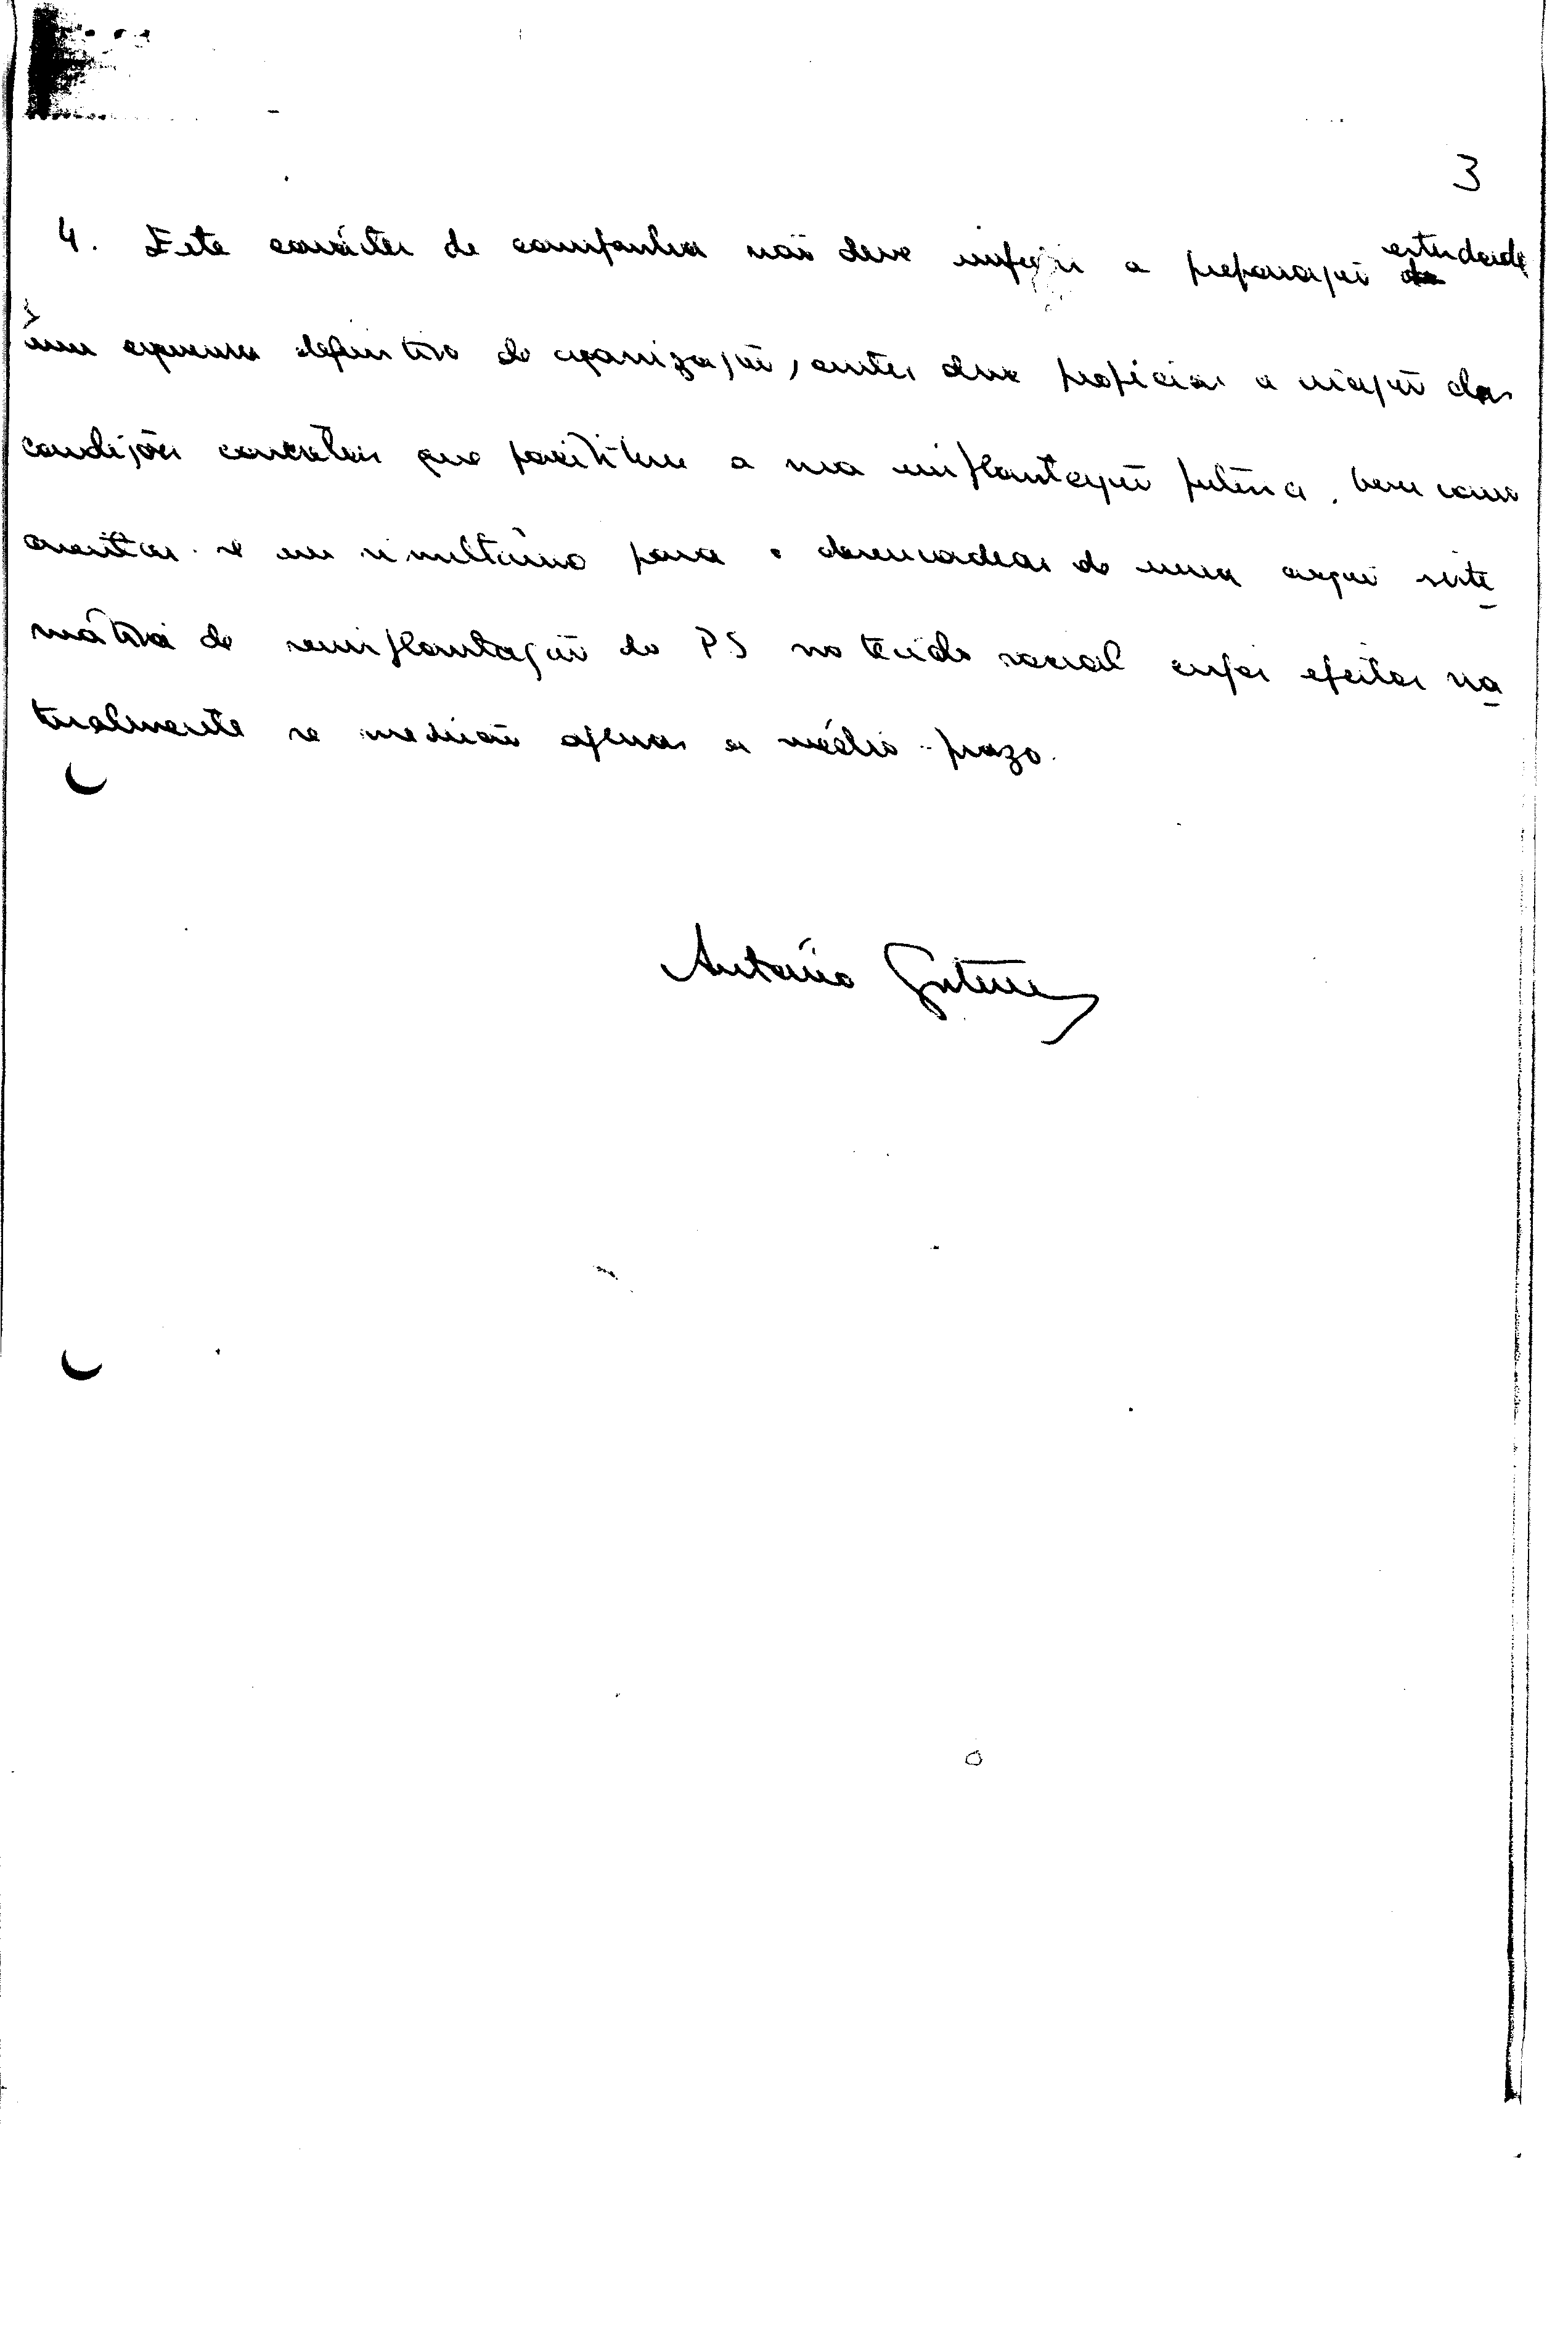 3
4. Este carácter de campanha não deve impedir a preparação estudada
dum esquema definitivo de organização, antes deve propiciar a criação das
condições concretas que possibilitem a sua implantação futura, bem como
orientar-se em simultâneo para o desencadear de uma acção siste
mática de reimplantação do PS no tecido social cujos efeitos na
turalmente se medirão apenas a médio-prazo.
António Guterres